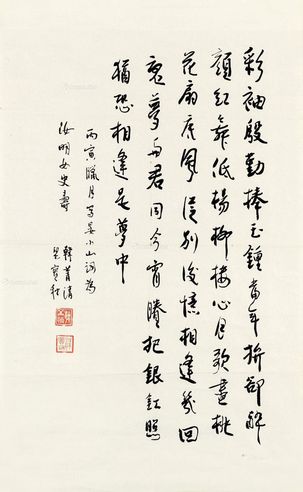 彩袖殷勤捧玉鍾當年拚卻醉
顏紅舞低楊柳樓心月歌盡桃
花扇底風從別後憶相逢幾回
魂夢與君同今宵賸把銀釭照
猶恐相逢是夢中
丙寅臘月寫晏小山詞為
汝明女史壽